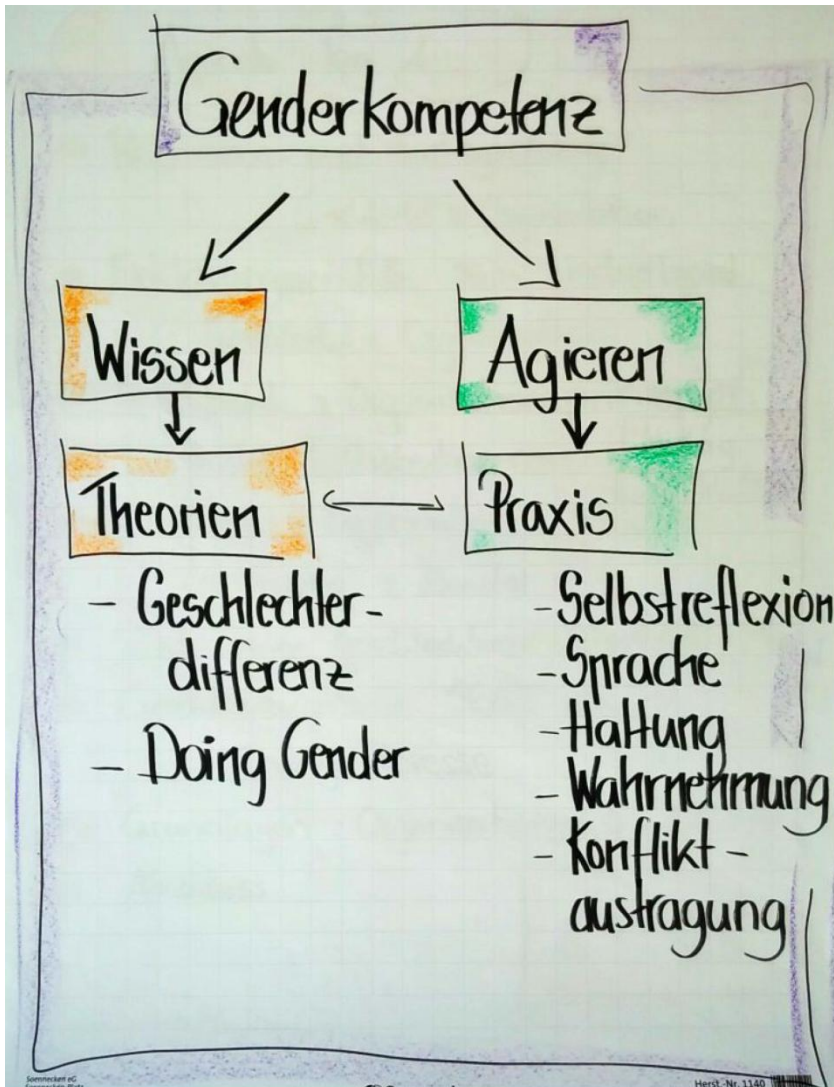 Genderkompetenz
Wissen
Agieren
Theorien
Praxis
- Geschlechter-
differenz
- Doing Gender
- Selbstreflexion
- Sprache
- Haltung
- Wahrnehmung
- Konflikt-
austragung
Soennecken eG
Herst.-Nr. 1140